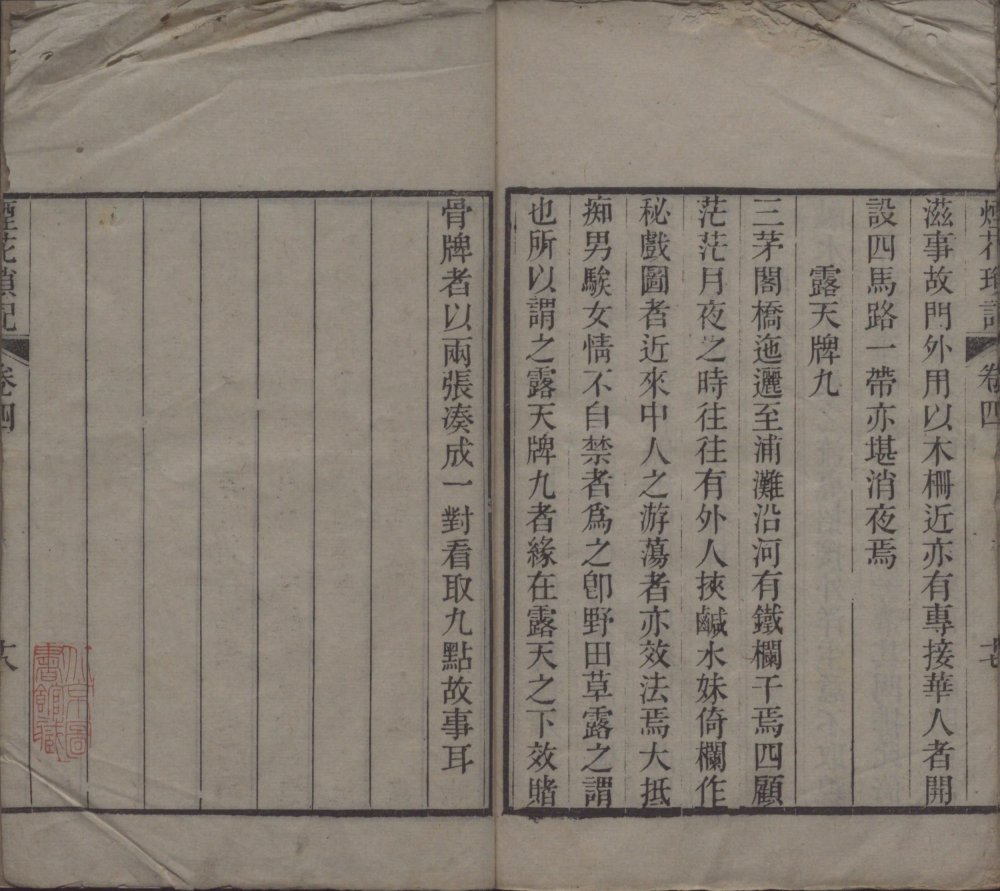 滋事故門外用以木柵近亦有專接華人者開
設四馬路一帶亦堪消夜焉
露天牌九
三茅閣橋迤邐至浦灘沿河有鐵欄干焉四顧
茫茫月夜之時往往有外人挾鹹水妹倚欄作
秘戲圖者近來中人之游蕩者亦效法焉大抵
痴男騃女情不自禁者爲之卽野田草露之謂
也所以謂之露天牌九者緣在露天之下效賭
骨牌者以兩張凑成一對看取九點故事耳
煙花瑣記
卷四